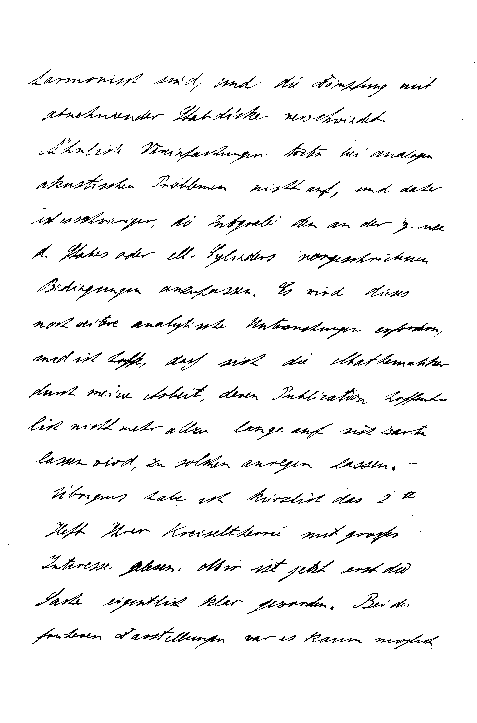 harmonisch sind, und die Dämpfung mit
abnehmender Stabdicke verschwindet
Ähnliche Vereinfachungen treten bei analogen
akustischen Problemen nicht auf, und daher
ist es schwieriger, die Integrale den an der
d. Stabes oder ell. Cylinders vorgeschriebenen
Bedingungen anzupassen. Es wird dieses
noch weitere analytische Untersuchungen erfordern,
und ich hoffe, daß sich die Mathematiker
durch meine Arbeit, deren Publication hoffent-
lich nicht mehr allzu lange auf sich warten
lassen wird, zu solchen anregen lassen. –
Übrigens habe ich kürzlich das 2te
Heft Ihrer Kreiseltheorie mit großem
Interesse gelesen. Mir ist jetzt erst die
Sache eigentlich klar geworden. Bei den
früheren Darstellungen war es kaum möglich